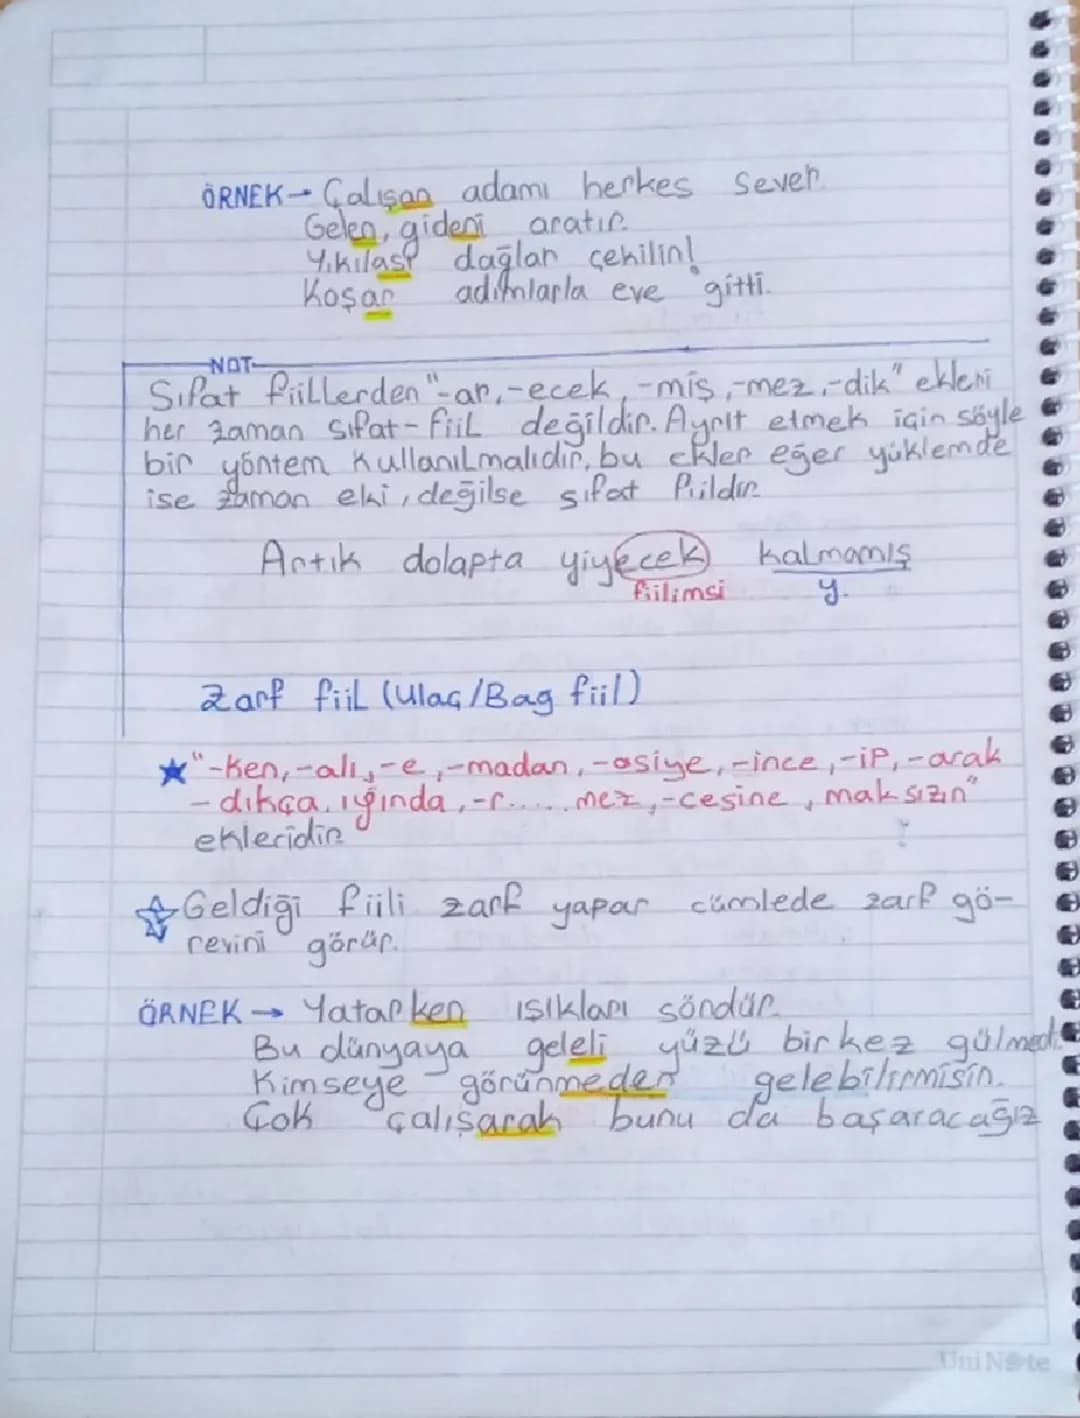 ÖRNEK → Çalışan adamı herkes sever.
Gelen, gideni aratır.
Yıkılası dağlar çekilin!
Koşar adımlarla eve gitti.
NOT
Sıfat fiillerden "-ar, -ecek, -miş, -mez, -dik" ekleri
her zaman sıfat-fiil değildir. Ayrıt etmek için şöyle
bir yöntem kullanılmalıdır, bu ekler eğer yüklemde
ise zaman eki, değilse sıfat fiildir.
Artık dolapta yiyecek kalmamış
fiilimsi y.
Zarf fiil (Ulaç/Bag fiil)
★ "-ken, -alı, -e, -madan, -asiye, -ince, -ip, -arak
-dıkça, ığında, -r..... mez, -cesine, maksızın"
ekleridir.
☆ Geldiği fiili zarf yapar cümlede zarf gö-
revini görür.
ÖRNEK → Yatarken ışıkları söndür.
Bu dünyaya geleli yüzü birkez gülmedi.
Kimseye görünmeden gelebilirmisin.
Çok çalışarak bunu da başaracağız
UniNote